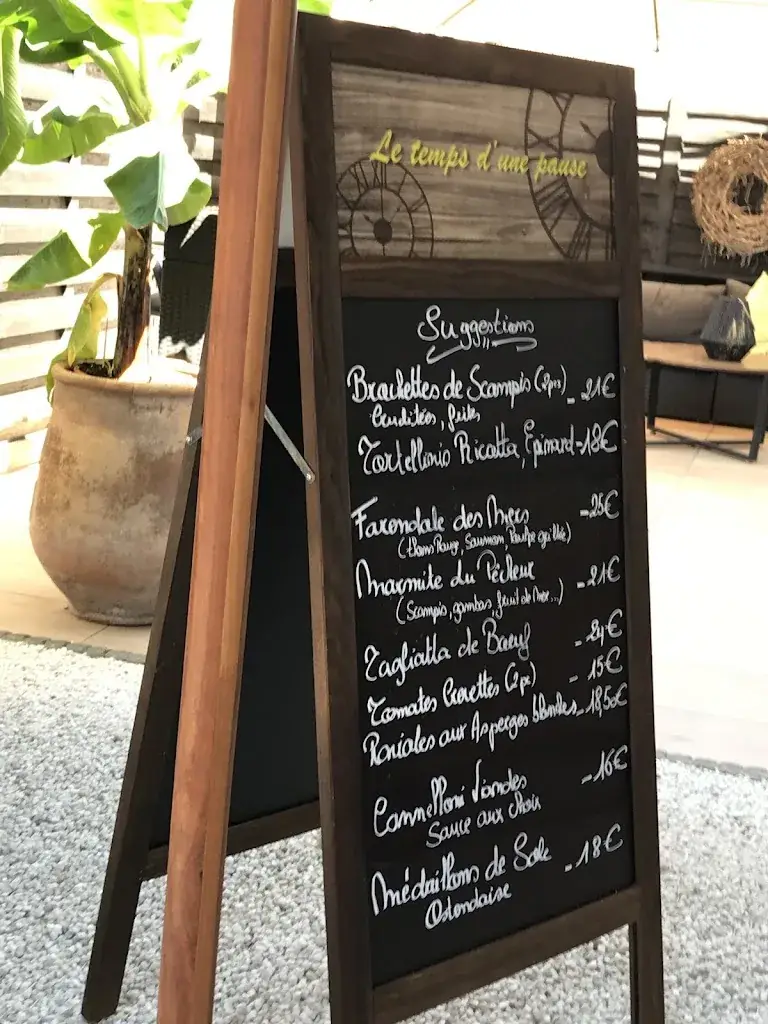 Le temps d'une pause
Suggestions
Brochettes de Scampis (2pcs) - 21€
Crudités, frites
Tortellonis Ricotta, Epinard - 18€
Farandole des Mers - 25€
(Thon Rouge, Saumon, Poulpe grillé)
Marmite du Pêcheur - 21€
(Scampis, gambas, fruit de Mer...)
Tagliatta de Bœuf - 24€
Tomates Crevettes (2pc) - 15€
Raviolis aux Asperges blanches - 18,50€
Cannelloni Viandes - 16€
Sauce aux choix
Médaillons de Sole - 18€
Ostendaise